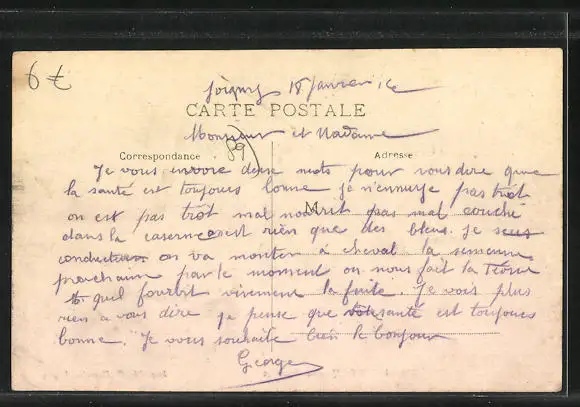 6 €
Joigny 18 Janvier 16
CARTE POSTALE
Monsieur et Madame
89
Correspondance Adresse
Je vous envoie deux mots pour vous dire que
la santé est toujours bonne je n'ennuye pas trôt
M
on est pas trôt mal nourrit pas mal couché
dans la caserne est rien que des bleus. je suis
conducteur on va monter à cheval la semaine
prochain par le moment on nous fait la
quel fourbit vivement la fuite. Je vois plus
rien a vous dire je pense que votre santé est toujours
bonne. Je vous souhaite bien le bonjour
George